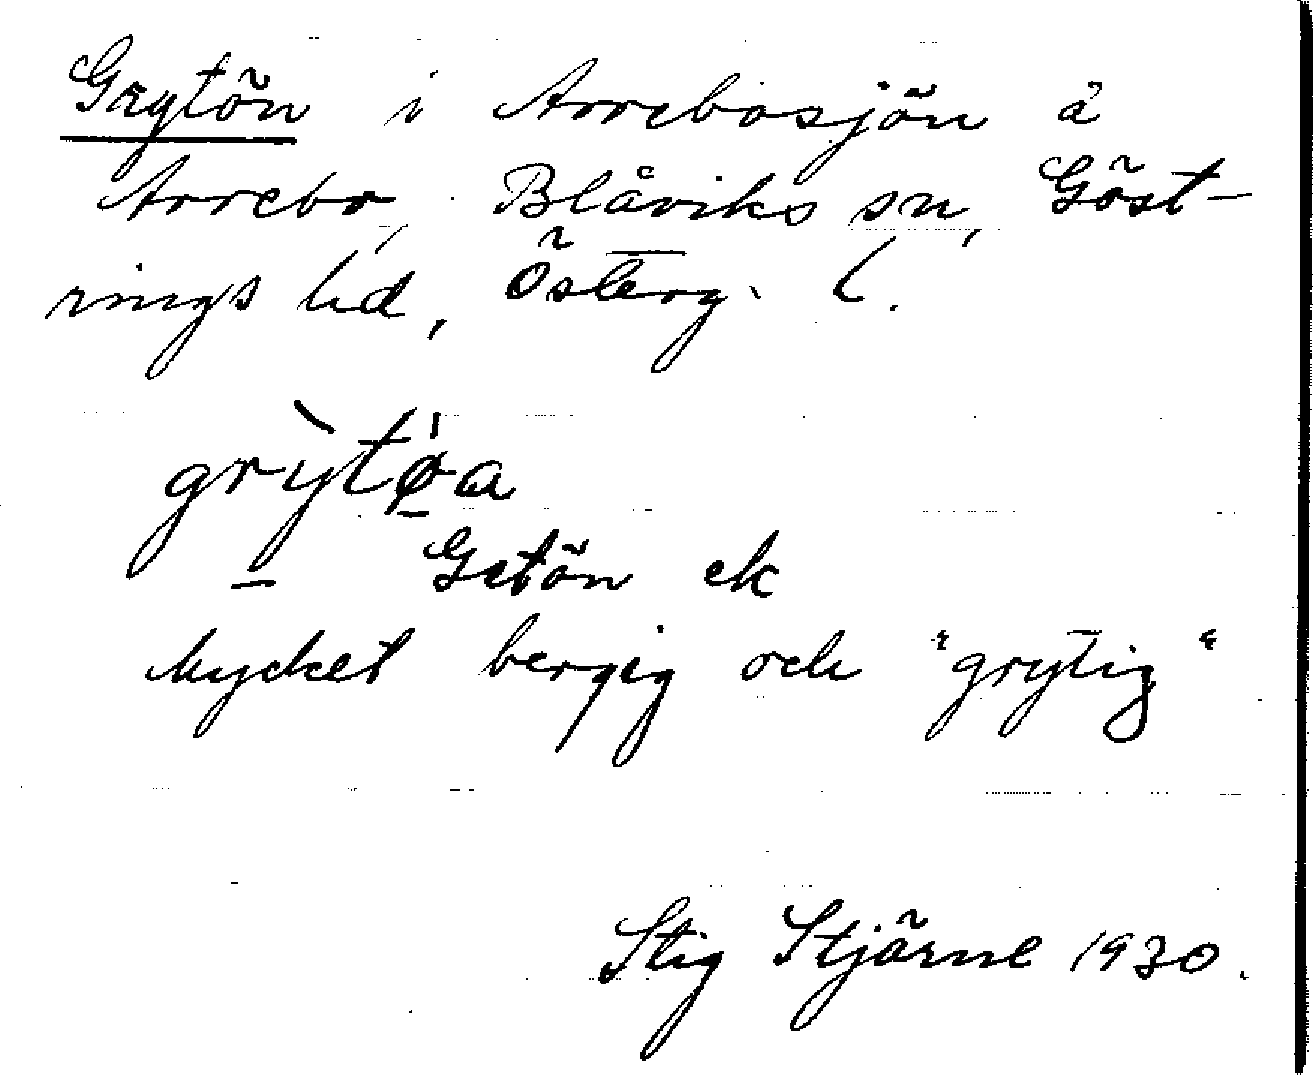 Grytön i Arrebosjön å
Arrebo, Blåviks sn, Göst-
rings hd, Österg. l.
grỳtø̱̍a
Getön ek
Mycket bergig och "grytig"
Stig Stjärne 1930.